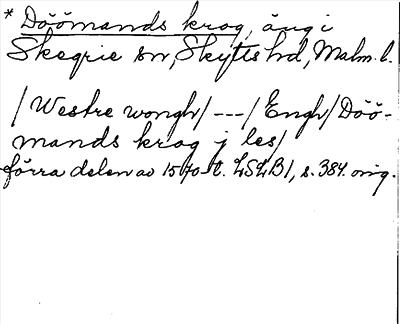 * Döömands krog, äng i
Skegrie sn, Skytts hd, Malm. l.
/Westre wongh/ ---/ Engh/Döö-
mands krog j les/
förra delen av 1570-t. LSLB1, s. 384. orig.